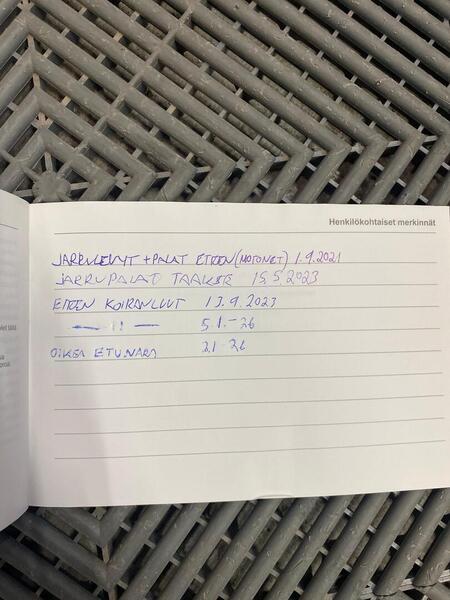 Henkilökohtaiset merkinnät
JARRULEVYT + PALAT ETEEN (MOTONET) 1.9.2021
JARRUPALAT TAAKSE 15.5.2023
ETEEN KOIRANLUUT 13.9.2023
— 11 — 5.1.-26
OIKEA ETUNAPA